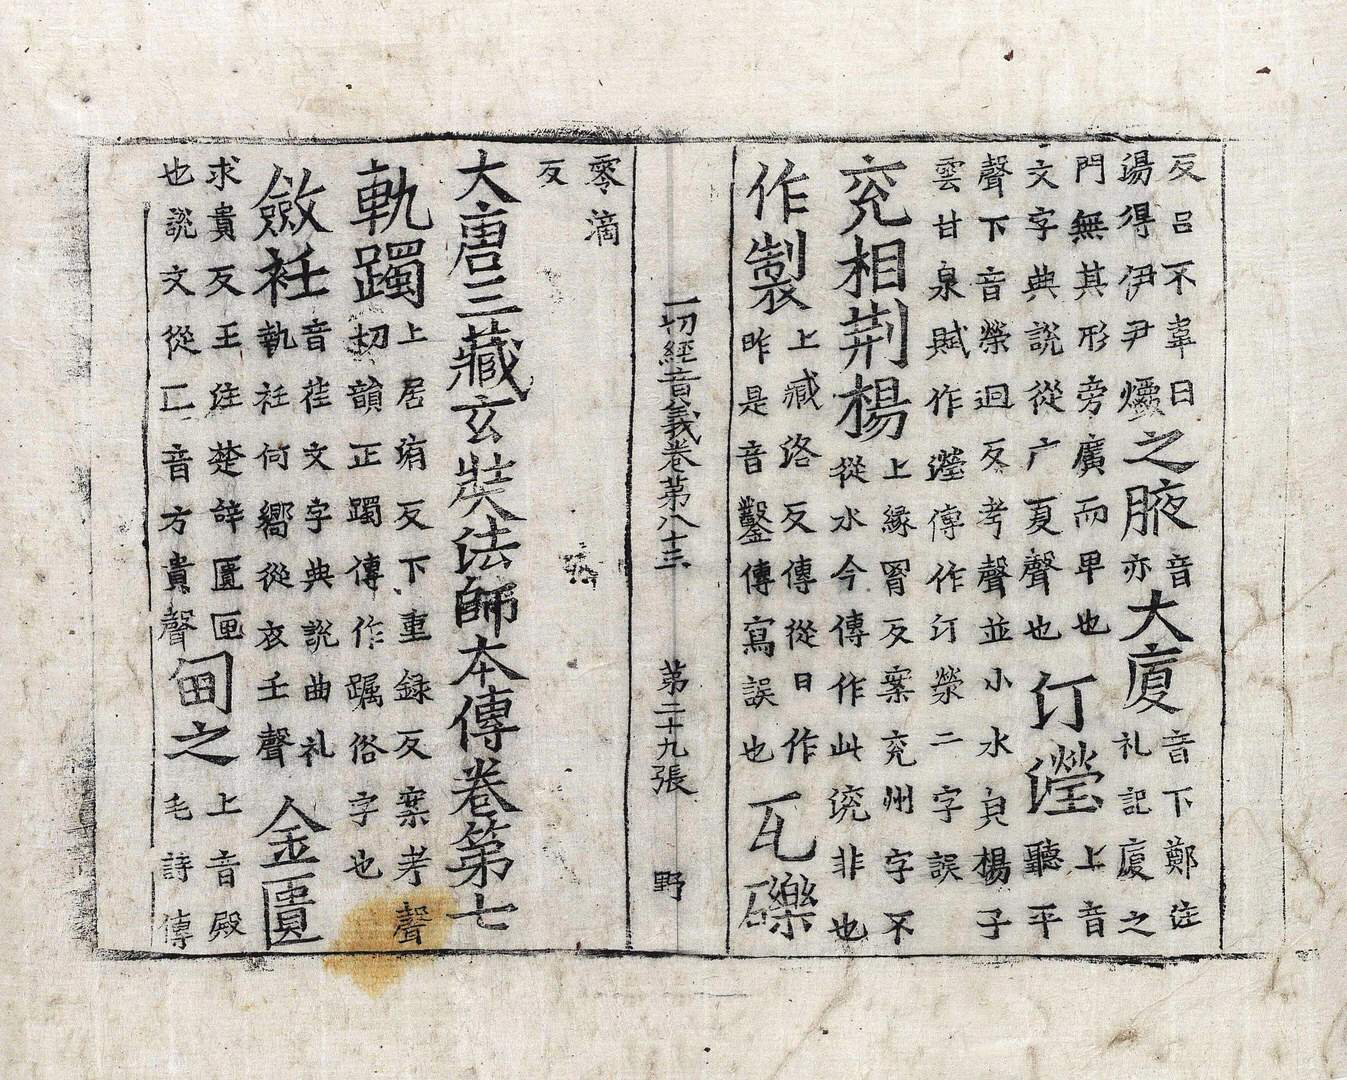 反呂不韋曰湯得伊尹之腋音亦大廈音下鄭注礼記廈之
門無其形旁廣而卑也文字典說從广夏聲也汀瀅上音聽平
聲下音榮迥反考聲並小水皃楊子雲甘泉賦作瀅傳作汀濴二字誤
兗相荊楊上緣胷反案兗州字不從水今傳作此渷非也
作製上臧洛反傳從日作昨是音鑿傳寫誤也瓦礫
一切經音義卷第八十三 第二十九張 野
零滴反
大唐三藏玄奘法師本傳卷第七
軌躅上居洧反下重録反案考聲切韻正躅傳作躅俗字也
斂衽音荏文字典說曲礼執衽何嚮從衣壬聲金匱
求貴反王注楚辭匱匣也說文從匚音方貴聲甸之上音殿毛詩傳